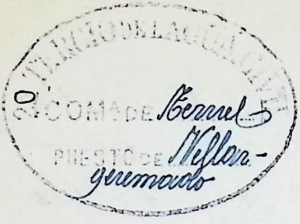 20 TERCIO DE LA GUA. CIVIL
COMA DE Teruel
PUESTO DE Villar-
quemado